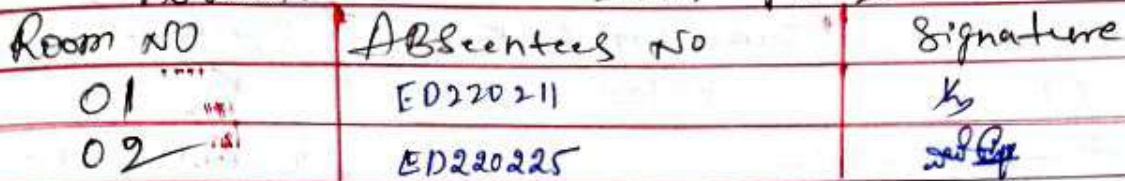 Room NO ABSeentees No Signature
01 ED220211
02 ED220225